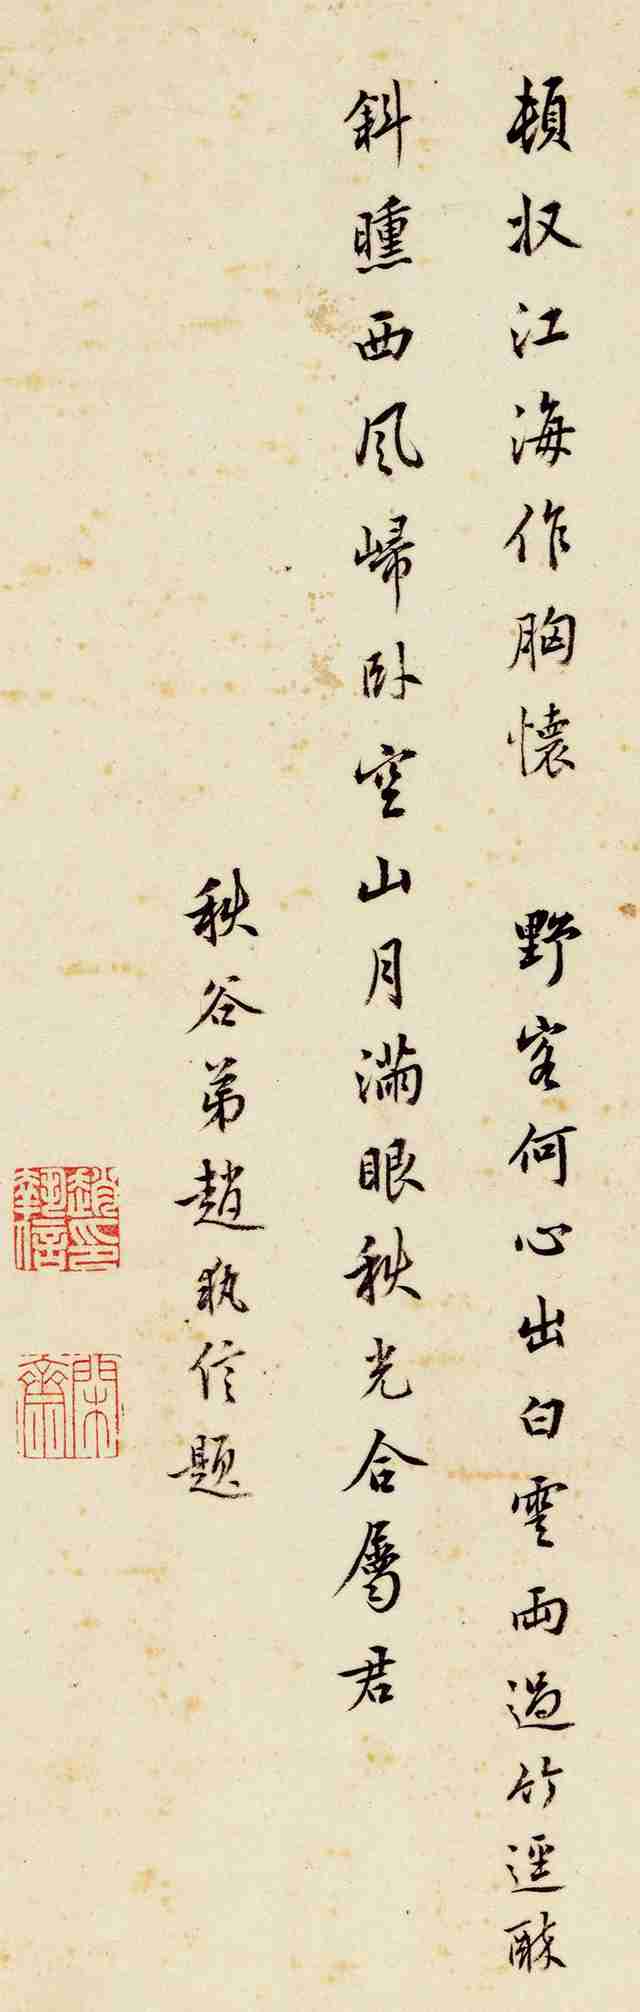 頓收江海作胸懷 野客何心出白雲雨過竹逕酔
斜曛西風歸卧空山月滿眼秋光合屬君
秋谷弟趙執信題
趙執信印
閑齋